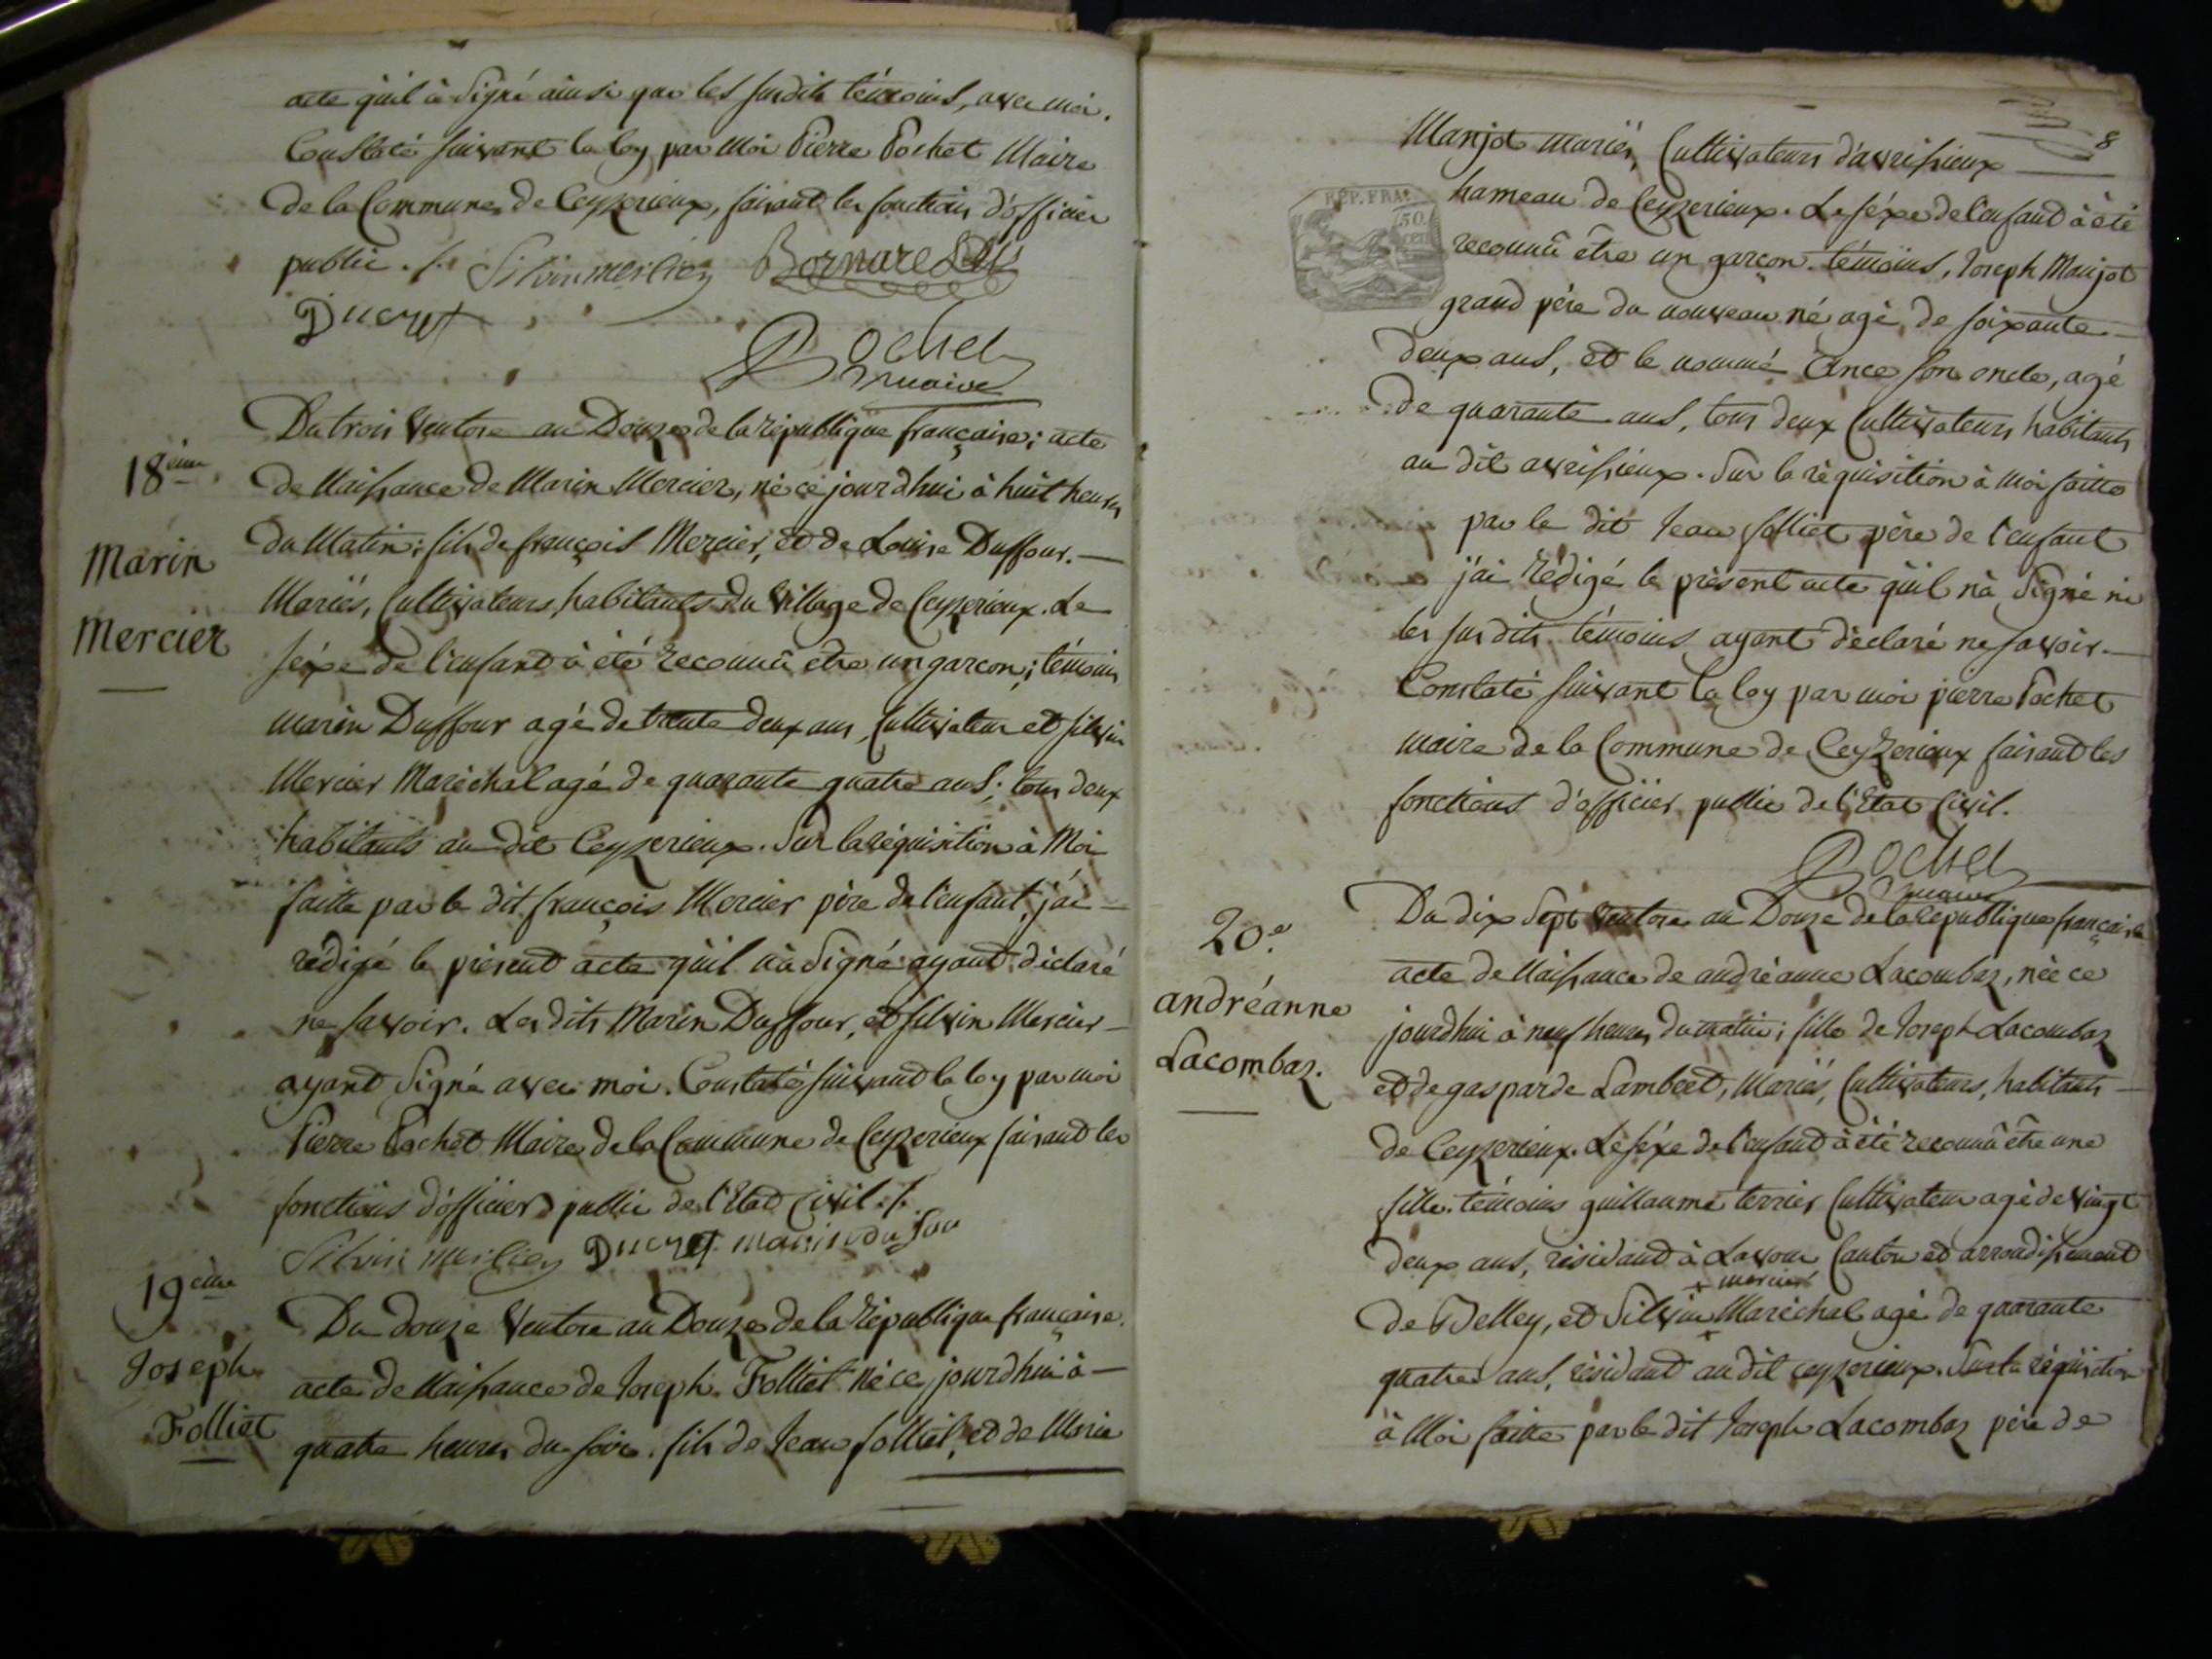 acte qu'il à Signé ainsi que les susdits témoins, avec moi.
Constaté suivant la loy par moi Pierre Pochet Maire
de la Commune de Ceyzerieux, faisant les fonctions d'officier
public ./. Silvin mercier Bornarel
Ducret
Pochet
maire
18ème
Marin
Mercier
Du trois Ventose an Douze de la république française; acte
de Naissance de Marin Mercier, né ce jourd'hui à huit heures
du Matin; fils de françois Mercier, et de Louise Duffour.
Mariés, Cultivateurs, habitants du Village de Ceyzerieux. Le
séxe de l'enfant à été reconnû être un garcon; témoins
marin Duffour agé de trente deux ans, Cultivateur et silvin
Mercier Maréchal agé de quarante quatre ans; tous deux
habitants au dit Ceyzerieux. Sur la réquisition à Moi
faitte par le dit françois Mercier père de l'enfant, j'ai
rédigé le présent acte qu'il n'à Signé ayant déclaré
ne savoir. Les dits Marin Duffour, et silvin Mercier
ayant Signé avec moi. Constaté suivant la loy par moi
Pierre Pochet Maire de la Commune de Ceyzerieux faisant les
fonctions d'officier public de l'Etat Civil ./.
Silvin mercier Ducret marin dufour
19ème
Joseph
Folliet
Du douze Ventose an Douze de la République française.
acte de Naissance de Joseph Folliet né ce jourd'hui à
quatre heures du soir. fils de Jean folliet, et de Marie
8
Manjot mariés, Cultivateurs d'avrissieux
REP. FRA.
50
cen
hameau de Ceyzerieux. Le séxe de l'enfant à été
reconnû être un garçon. témoins, Joseph Manjot
grand père du nouveau né agé de soixante
deux ans, et le nommé Ance son oncle, agé
de quarante ans, tous deux Cultivateurs habitants
au dit avrissieux. Sur la réquisition à moi faitte
par le dit Jean folliet père de l'enfant
j'ai rédigé le présent acte qu'il n'à Signé ni
les susdits témoins ayant déclaré ne savoir.
Constaté suivant la loy par moi pierre Pochet
maire de la Commune de Ceyzerieux faisant les
fonctions d'officier public de l'Etat Civil.
Pochet
maire
20e.
andréanne
Lacombaz.
Du dix Sept Ventose an Douze de la république française
acte de Naissance de andréanne Lacombaz, née ce
jourdhui à neuf heures du matin; fille de Joseph Lacombaz
et de gasparde Lambert, Mariés, Cultivateurs, habitants
de Ceyzerieux. Le séxe de l'enfant à été reconnû être une
fille. témoins guillaume terrier Cultivateur agé de vingt
deux ans, résidant à Lavour Canton et arrondissement
+ mercier
de Belley, et Silvin + Maréchal agé de quarante
quatre ans, résidant au dit ceyzerieux. Sur la réquisition
à Moi faitte par le dit Joseph Lacombaz père de